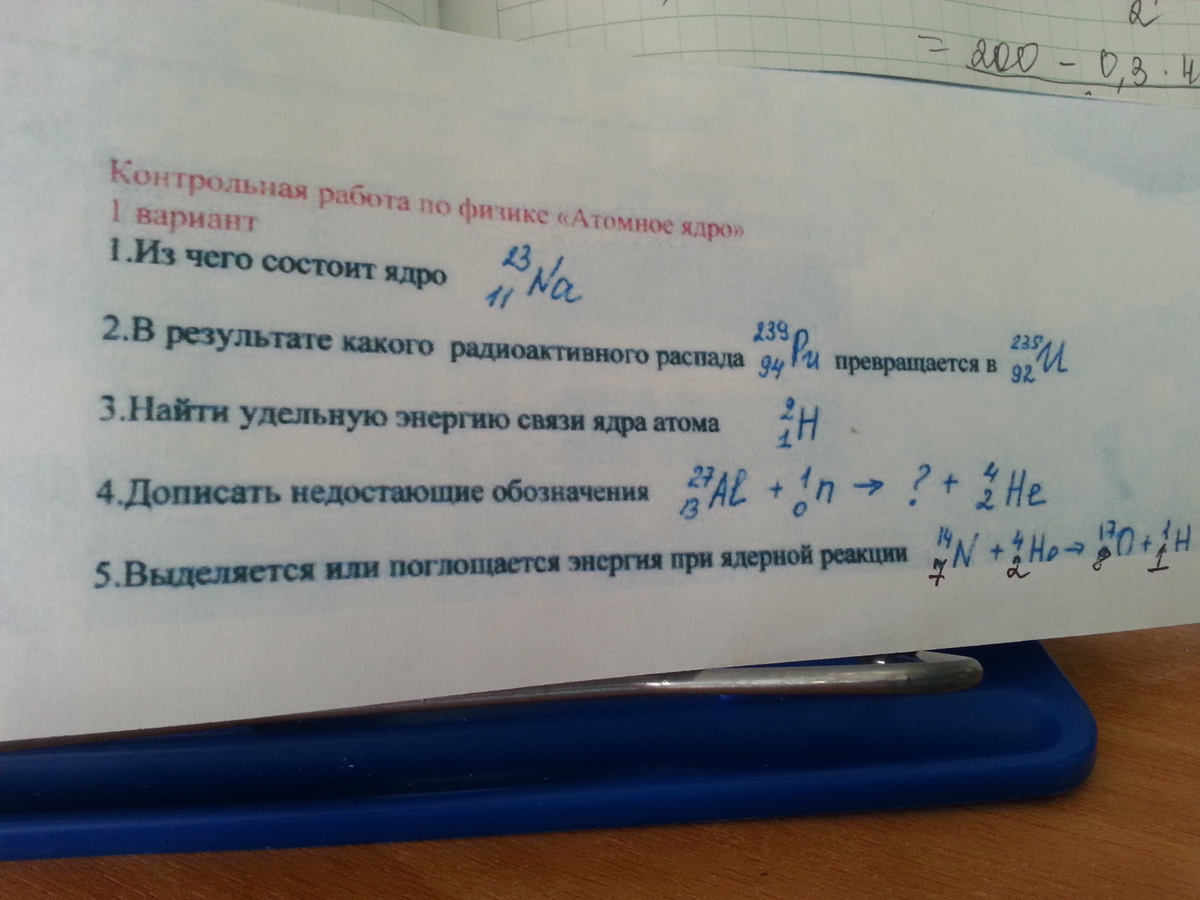 2
= 200 - 0,3 · 4
Контрольная работа по физике «Атомное ядро»
1 вариант
1.Из чего состоит ядро ²³₁₁Na
2.В результате какого радиоактивного распада ²³⁹₉₄Pu превращается в ²³⁵₉₂U
3.Найти удельную энергию связи ядра атома ²₁H
4.Дописать недостающие обозначения ²⁷₁₃Al + ¹₀n → ? + ⁴₂He
5.Выделяется или поглощается энергия при ядерной реакции ¹⁴₇N + ⁴₂He → ¹⁷₈O + ¹₁H